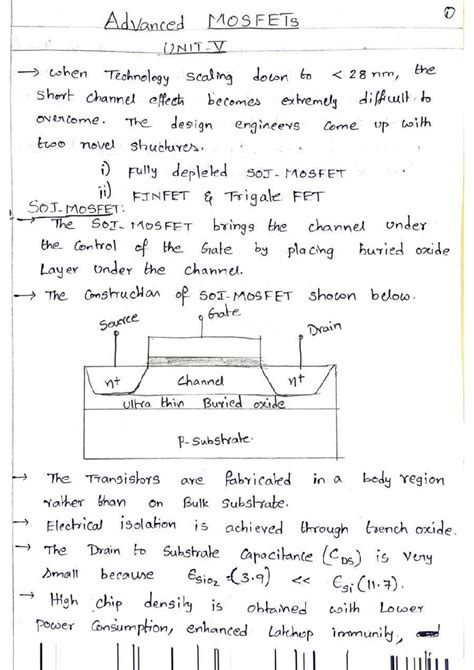 ①
Advanced MOSFETs
UNIT-V
→ When Technology Scaling down to < 28nm, the
Short Channel effects becomes extremely difficult to
overcome. The design engineers come up with
two novel structures.
i) Fully depleted SOI-MOSFET
ii) FINFET & Trigate FET
SOI-MOSFET:
→ The SOI-MOSFET brings the channel under
the control of the Gate by placing buried oxide
Layer under the channel.
→ The Construction of SOI-MOSFET shown below.
Source
Gate
Drain
n+
Channel
n+
Ultra thin Buried oxide
P-Substrate.
→ The Transistors are fabricated in a body region
rather than on Bulk Substrate.
→ Electrical isolation is achieved through trench oxide.
→ The Drain to Substrate Capacitance (C_DS) is Very
Small because Є_SiO2 = (3.9) << Є_Si (11.7).
→ High chip density is obtained with Lower
Power Consumption, enhanced Latchup immunity,